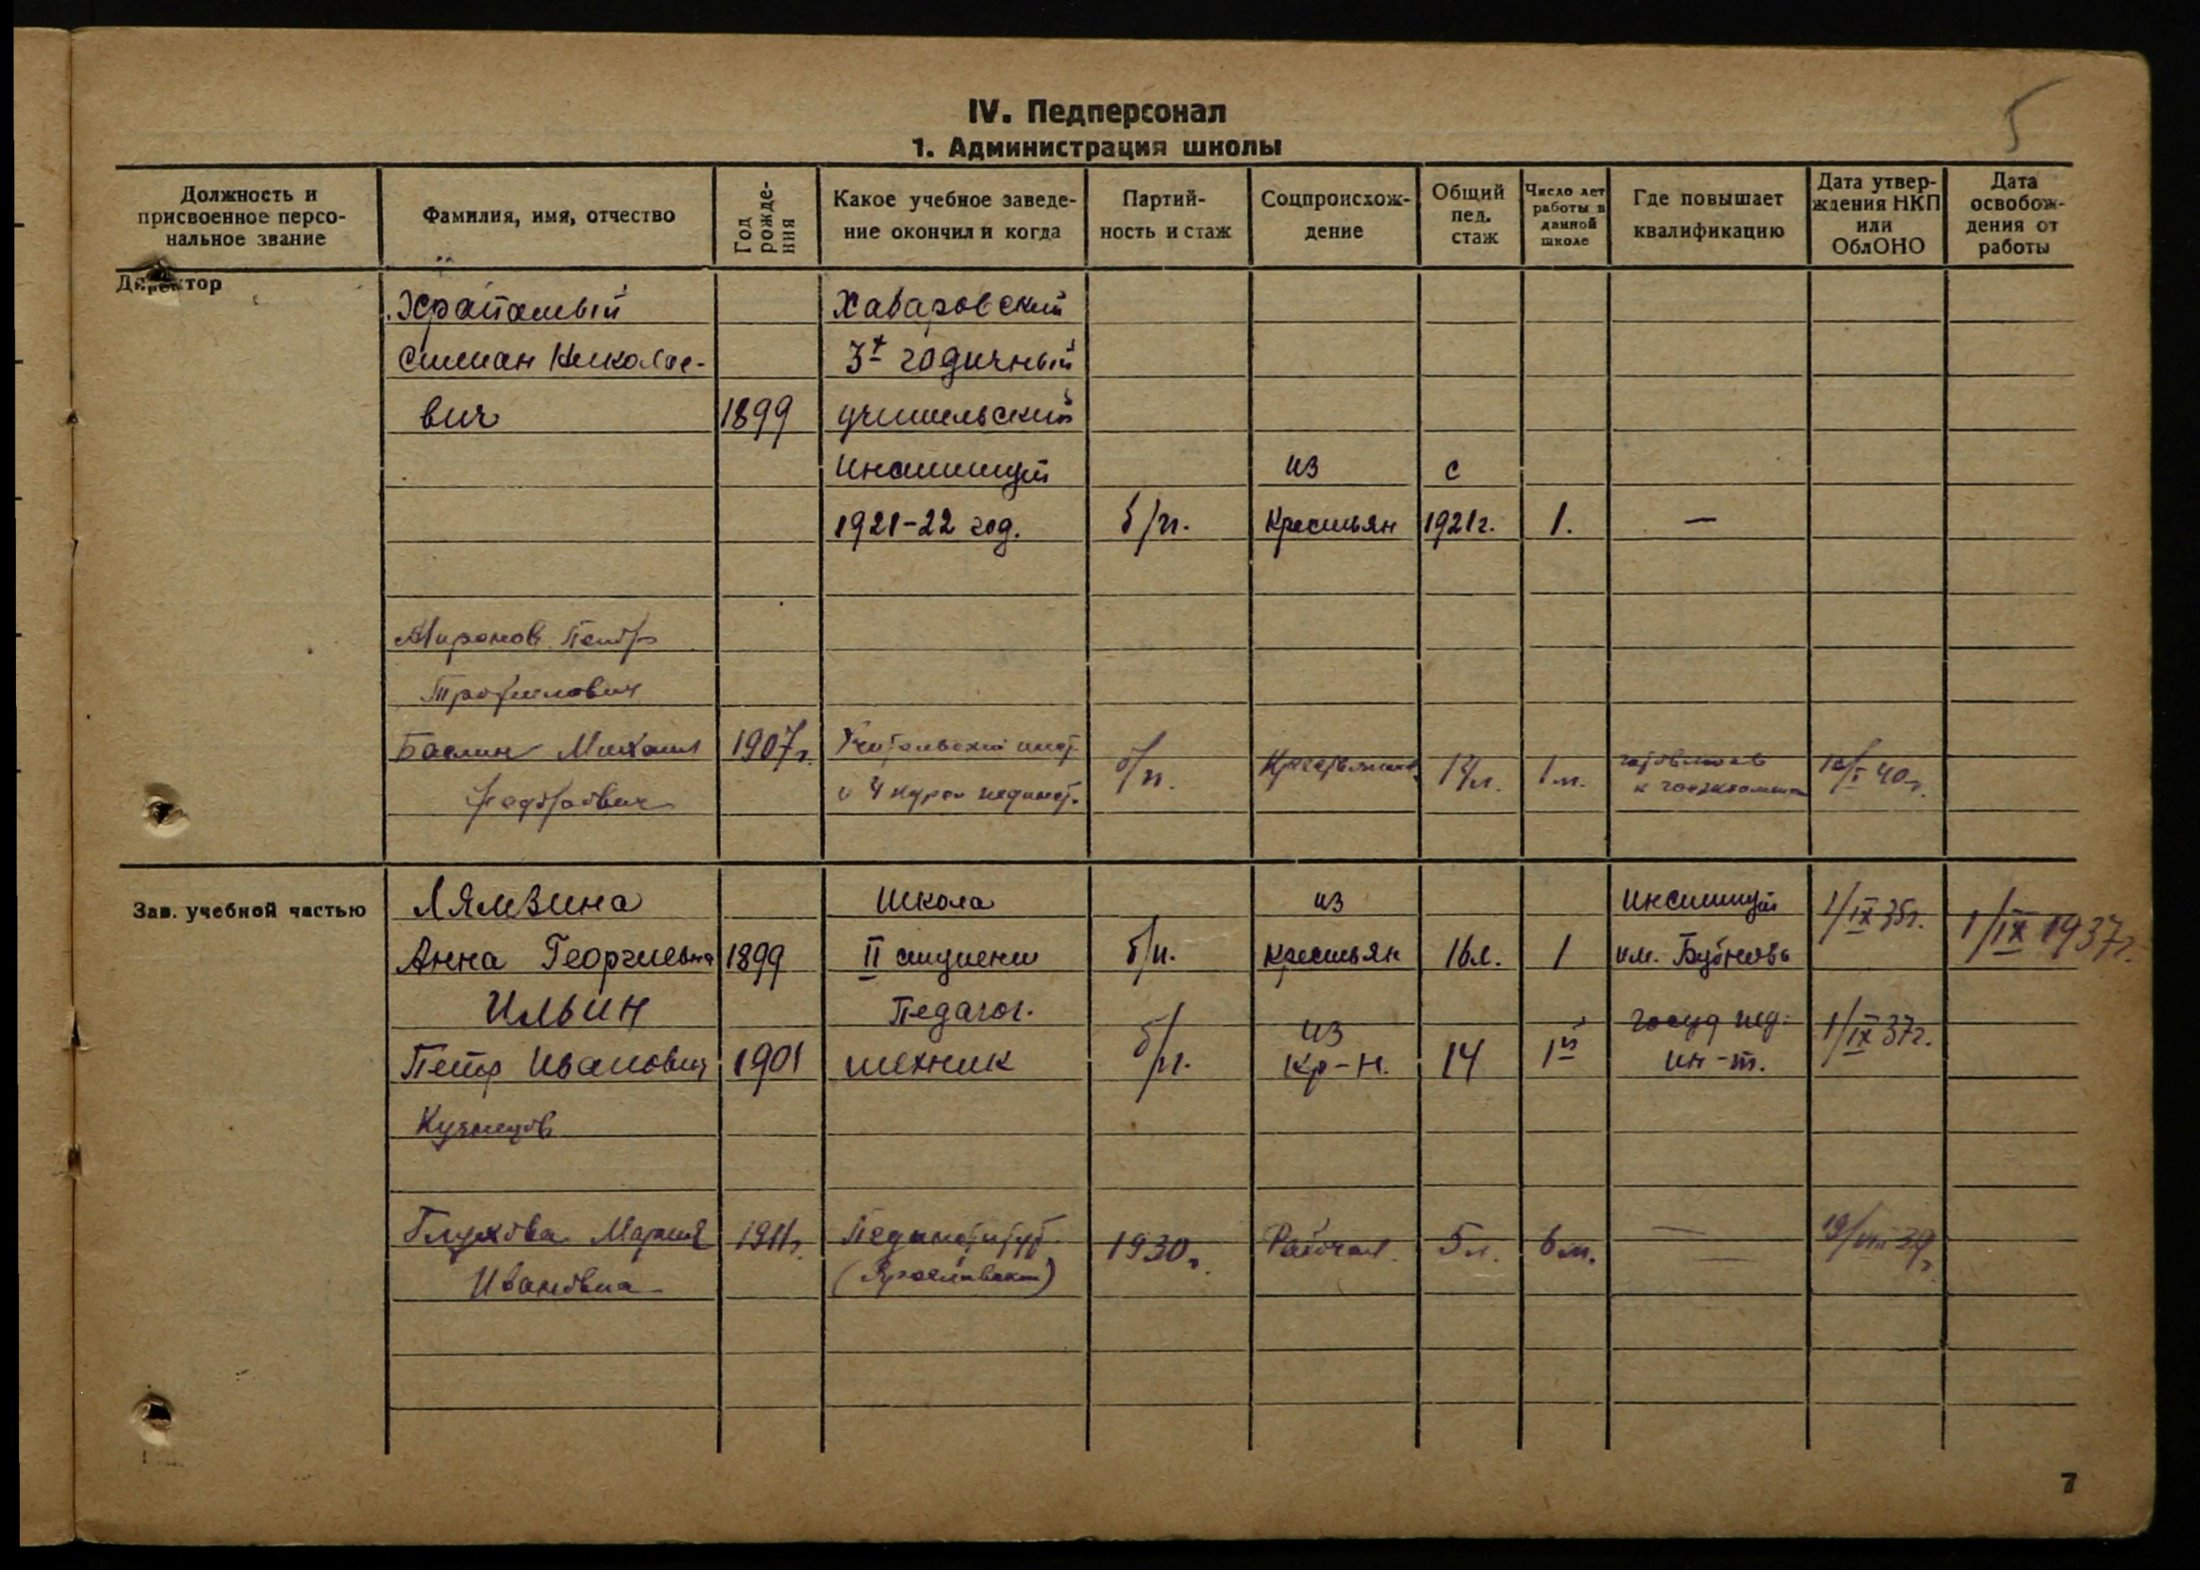 5
IV. Педперсонал
1. Администрация школы
Должность и присвоенное персо-нальное звание
Фамилия, имя, отчество
Год рожде-ния
Какое учебное заведе-ние окончил и когда
Партий-ность и стаж
Соцпроисхож-дение
Общий пед. стаж
Число лет работы в данной школе
Где повышает квалификацию
Дата утвер-ждения НКП или ОблОНО
Дата освобож-дения от работы
Директор
Храпатый Хабаровский
Степан Николае- 3х годичный
вич 1899 учительский
Институт из с
1921-22 год. б/п. Крестьян 1921г. 1. —
Миронов Петр
Трофимович
Баслин Михаил 1907г. Учительский инст. б/п. 1м. готовится 40г.
и 4 курса пединст. к госэкзамен
Зав. учебной частью
Лямзина Школа из Институт 1/IX 35г. 1/IX 1937г.
Анна Георгиевна 1899 II ступени б/п. Крестьян 16л. 1 им. Бубнова
Ильин Педагог. б/п. из госуд пед. 1/IX 37г.
Петр Иванович 1901 техник Кр-н. 14 1й ин-т.
Кузнецов
Глухова Мария 1911г. Пединститут 1930г. Рабочая 5л. 6м. — 19/VIII 39г.
Ивановна (Ярославский)
7